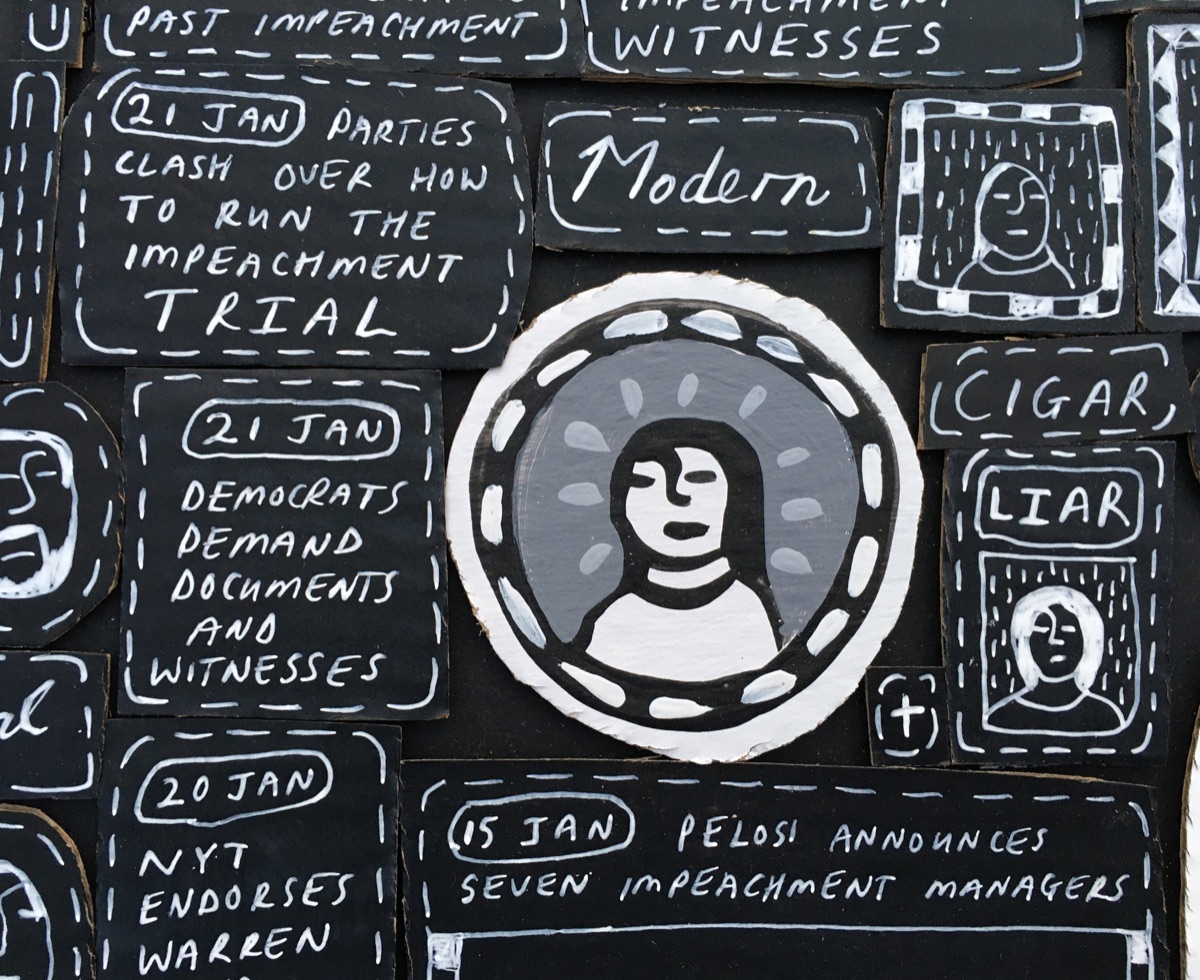 PAST IMPEACHMENT
WITNESSES
21 JAN PARTIES
CLASH OVER HOW
TO RUN THE
IMPEACHMENT
TRIAL
Modern
CIGAR,
LIAR
21 JAN
DEMOCRATS
DEMAND
DOCUMENTS
AND
WITNESSES
+
20 JAN
NYT
ENDORSES
WARREN
15 JAN PELOSI ANNOUNCES
SEVEN IMPEACHMENT MANAGERS